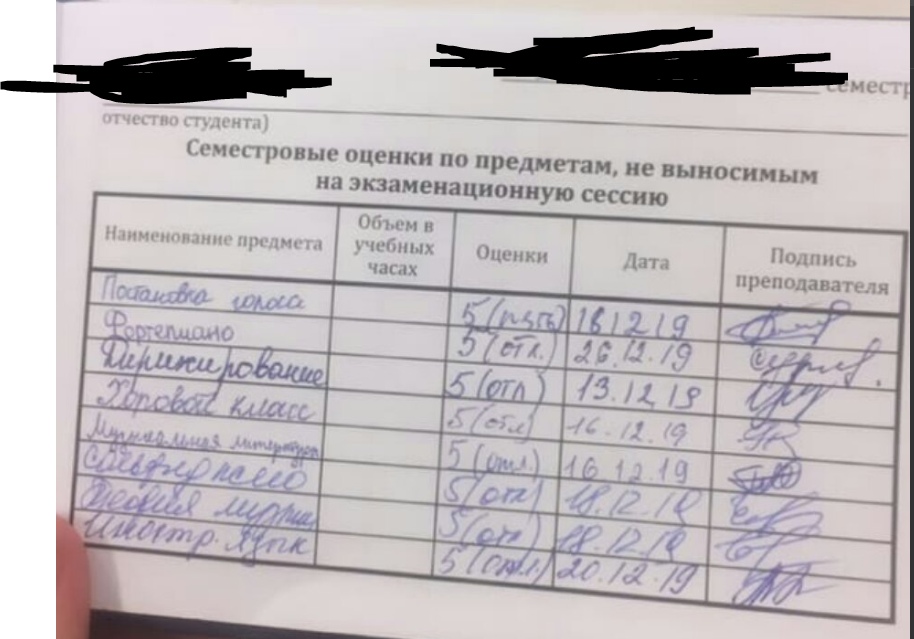 семестр
отчество студента)
Семестровые оценки по предметам, не выносимым
на экзаменационную сессию
Наименование предмета Объем в учебных часах Оценки Дата Подпись преподавателя
Постановка голоса 5 (пять) 18.12.19
Фортепиано 5 (отл.) 26.12.19
Дирижирование 5 (отл) 13.12.19
Хоровой класс 5 (отл) 16.12.19
Музыкальная литература 5 (отл.) 16.12.19
Сольфеджио 5 (отл) 18.12.19
Теория музыки 5 (отл) 18.12.19
Иностр. язык 5 (отл.) 20.12.19